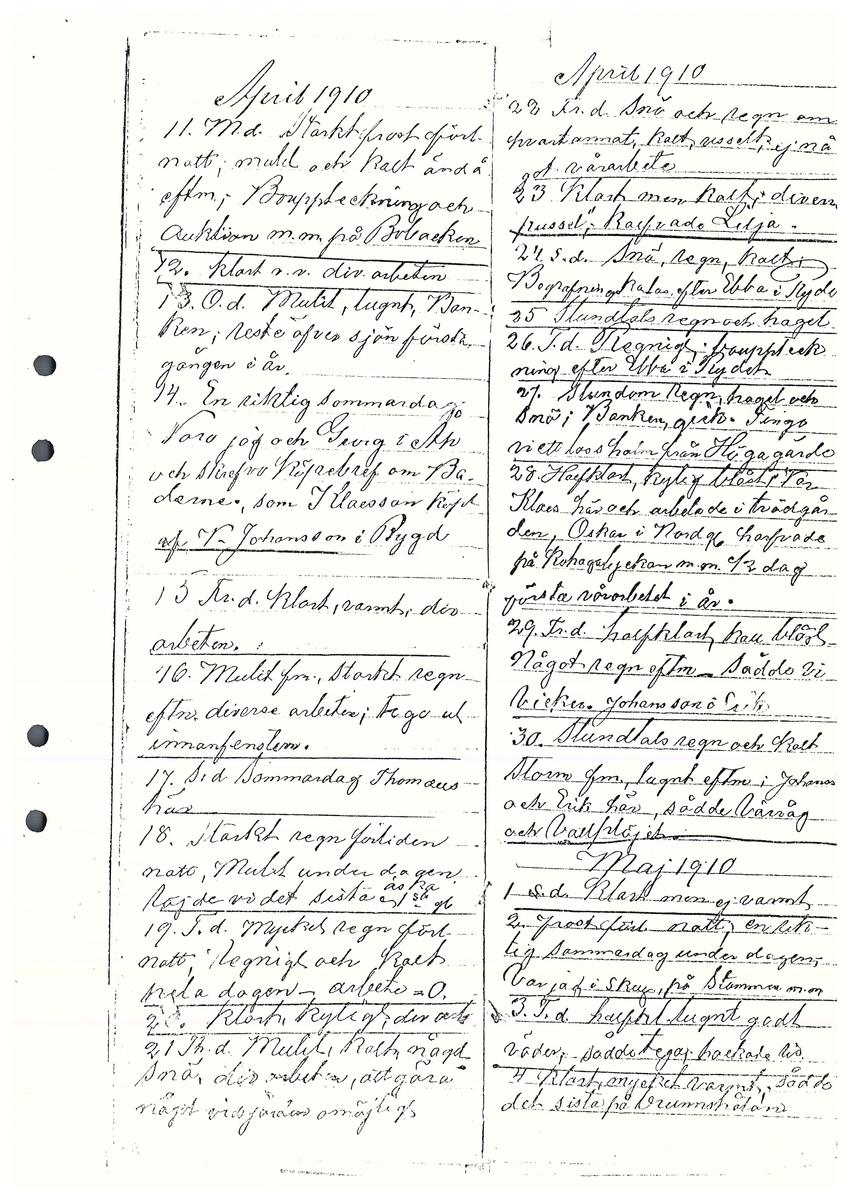 April 1910
11. M.d. Starkt frost förl.
natt; mulet och kalt ändå
eftm.; Bouppteckning och
Auktion m.m. på Bobacken
12. klart n.v. div. arbeten
13. O.d. Mulit, lugnt, Ban-
ken; reste öfver sjön första
gången i år.
14. En riktig sommardag
Voro jag och Georg i
och skrefvo Köpebref om Ba-
derne, som Klaesson köpt
af V. Johansson i Bygd
15 Fr.d. Klart, varmt, div
arbeten.
16. Mulit fm., starkt regn
eftm. diverse arbeten; togo ut
innanfenstern.
17. S.d Sommardag Thomæus
här
18. Starkt regn förliden
natt, Mulit under dagen,
löjde vi det sista
19. T.d. Mycket regn förl.
natt; Regnigt och kalt
hela dagen – arbete = 0.
20. Klart, kyligt, div arb
21 Th.d. Mulit, kalt, någd
snö, div arbeten, att göra
något vidjorden omöjligt
April 1910
22 Fr.d. Snö och regn om
hvartannat, kalt, usselt, ej nå
got vårarbete
23 Klart men kalt; divern
pussel", harfvade Lilja.
24. S.d. Snö, regn, kalt;
Begrafningskalas efter Ebba i Ryde
25 Stundtals regn och hagel
26. T.d. Regnigt; bouppteck
ning efter Ebba i Rydet
27. Stundom regn, hagel och
snö; Banken, gick. Fingo
vi ett lass halm från Högagärde
28. Halfklart, kylig blåst; Var
Klaes här och arbetade i trädgår
den, Oskar i Nordg harfvade
på Kohagslyckan m.m. 1/2 dag
första vårarbetet i år.
29. Fr.d. halfklart, kall blåst
Något regn eftm – Sådde vi
Vicker. Johansson o Erik
30. Stundtals regn och kalt
storm fm., lugnt eftm; Johanss
och Erik här, sådde Vårråg
och
Maj 1910
1 S.d. Klart men ej varmt
2. frost förl. natt, en rik-
tig sommardag under dagen;
Var jag i skog, på Stämman m.m
3. T.d. halfkl lugnt godt
väder, sådde hackade
4 Klart, mycket varmt, sådde
det sista på Brunnshålan